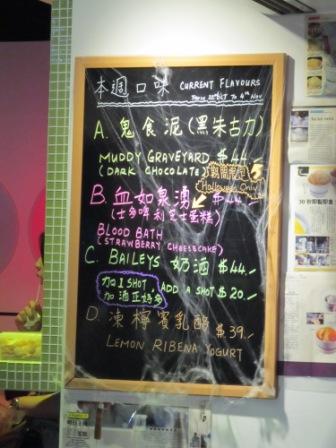 本週口味 CURRENT FLAVOURS
From 22nd Oct To 4th Nov
A. 鬼食泥 (黑朱古力)
MUDDY GRAVEYARD $44.-
(DARK CHOCOLATE)
Halloween Only
B. 血如泉湧 $44.-
(士多啤利芝士蛋糕)
BLOOD BATH
(STRAWBERRY CHEESECAKE)
C. BAILEYS 奶酒 $44.-
加1 SHOT
加酒正好多
ADD A SHOT $20.-
D. 凍檸賓乳酪 $39.-
LEMON RIBENA YOGURT